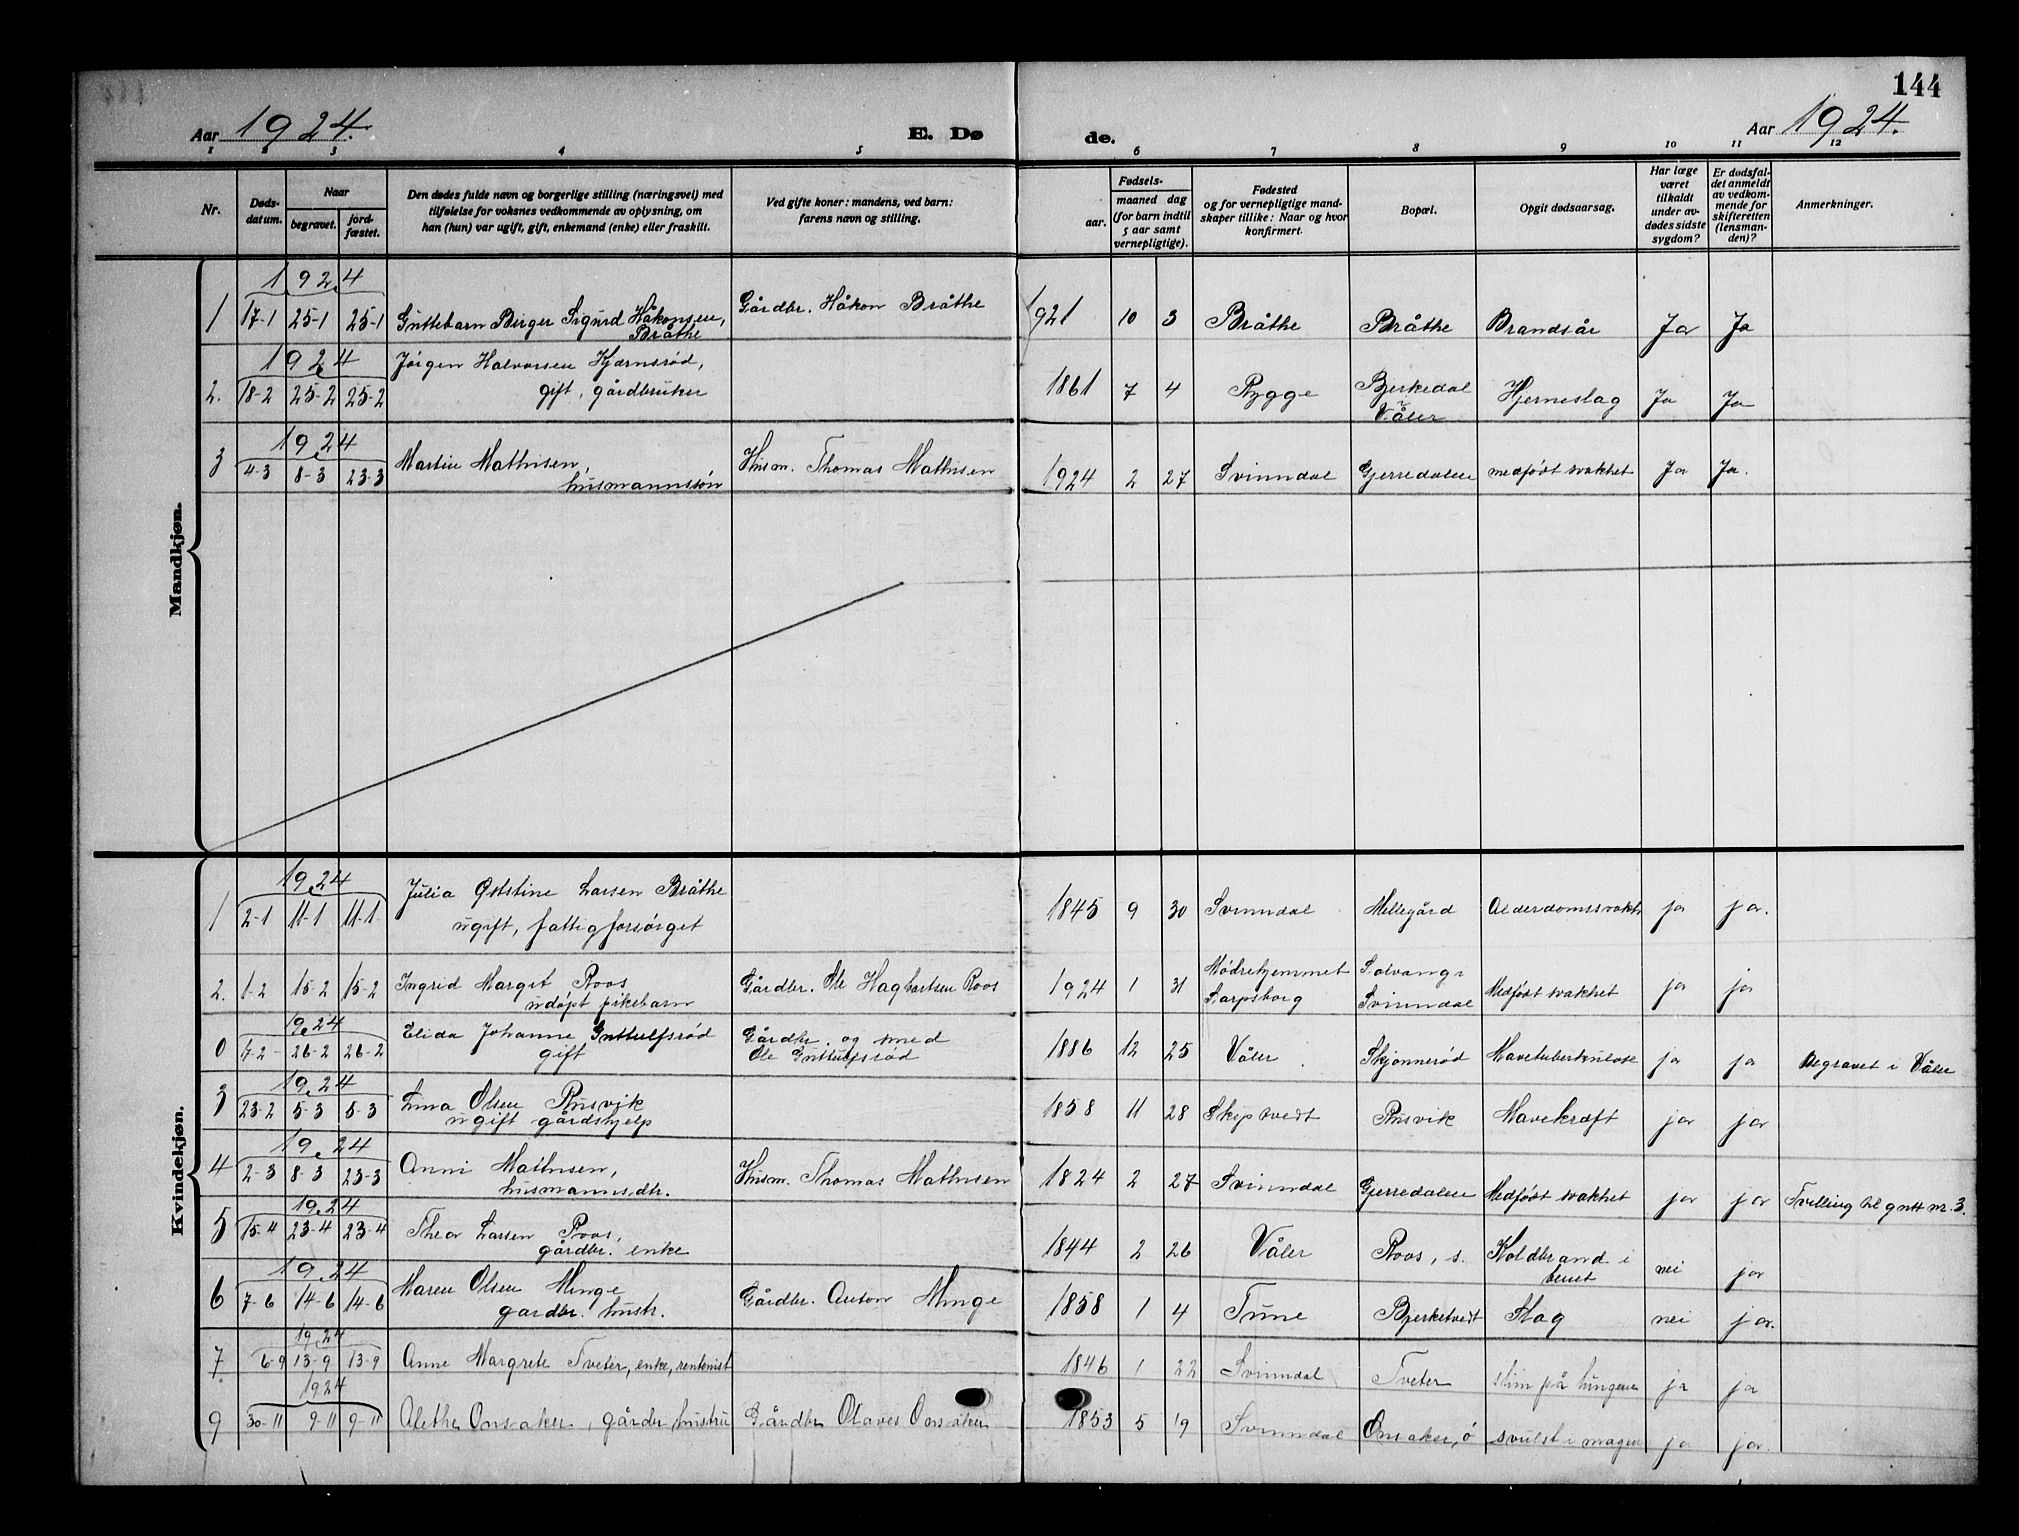 144
Aar 1924. E. Dø de. Aar 1924.
1 2 3 4 5 6 7 8 9 10 11 12
Nr.
Døds-
datum.
Naar
begravet.
jord-
fæstet.
Den dødes fulde navn og borgerlige stilling (næringsvei) med
tilføielse for voksnes vedkommende av oplysning, om
han (hun) var ugift, gift, enkemand (enke) eller fraskilt.
Ved gifte koner: mandens, ved barn:
farens navn og stilling.
Fødsels-
aar.
maaned dag
(for barn indtil
5 aar samt
vernepligtige).
Fødested
og for vernepligtige mand-
skaper tillike: Naar og hvor
konfirmert.
Bopæl.
Opgit dødsaarsag.
Har læge
været
tilkaldt
under av-
dødes sidste
sygdom?
Er dødsfal-
det anmeldt
av vedkom-
mende for
skifteretten
(lensman-
den)?
Anmerkninger.
Mandkjøn.
1924
1 17-1 25-1 25-1 Guttebarn Birger Sigurd Håkonsen, Gårdbr. Håkon Bråthe 1921 10 3 Bråthe Bråthe Brandsår Ja Ja
Bråthe
1924 Jörgen Halvorsen Kjærnsröd,
2. 18-2 25-2 25-2 gift, gårdbruker 1861 7 4 Rygge Bjerkedal Hjerneslag Ja Ja
Våler
1924
3 4-3 8-3 23-3 Martin Mathisen, Husm. Thomas Mathisen 1924 2 27 Svinndal Gjerredalen medfödt svakhet Ja Ja.
husmannssön
Kvindekjøn.
1924 Julia Östine Larsen Bråthe
1 2-1 11-1 11-1 ugift, fattigforsörget 1845 9 30 Svinndal Mellegård Alderdomssvakh ja ja.
2. 1-2 15-2 15-2 Ingrid Margit Roos Gårdbr. Ole Haghartsen Roos 1924 1 31 Mödrehjemmet Solvang i Medfödt svakhet ja ja
udöpt pikebarn Sarpsborg Svinndal
1924 Elida Johanne Guttulfsröd Gårdbr. og smed
0 4-2 26-2 26-2 gift Ole Guttulfsröd 1886 12 25 Våler Skjönneröd Mavetuberkulose ja ja Begravet i Våler
1924
3 23-2 5-3 5-3 Lina Olsen Rusvik 1858 11 28 Skiptvedt Rusvik Mavekræft ja ja
ugift gårdshjelp
1924
4 2-3 8-3 23-3 Anni Mathisen, Husm. Thomas Mathisen 1824 2 27 Svinndal Gjerredalen Medfödt svakhet ja ja Tvilling til gutt nr. 3.
husmannsdtr.
1924
5 15-4 23-4 23-4 Thea Larsen Roos, 1844 2 26 Våler Roos, s. Koldbrand i nei ja
gårdbr. enke benet
1924
6 7-6 14-6 14-6 Maren Olsen Minge Gårdbr. Anton Minge 1858 1 4 Tune Bjerketvedt Slag nei ja.
gardbr. hustr.
1924
7 6-9 13-9 13-9 Anne Margrete Tveter, enke, rentenist 1846 1 22 Svinndal Tveter slim på lungene ja ja
1924
9 30-11 9-11 9-11 Alethe Onsaker, gårdbr. hustru Gårdbr Olaves Onsaker 1853 5 19 Svinndal Onsaker, ö svulst i magen ja ja.